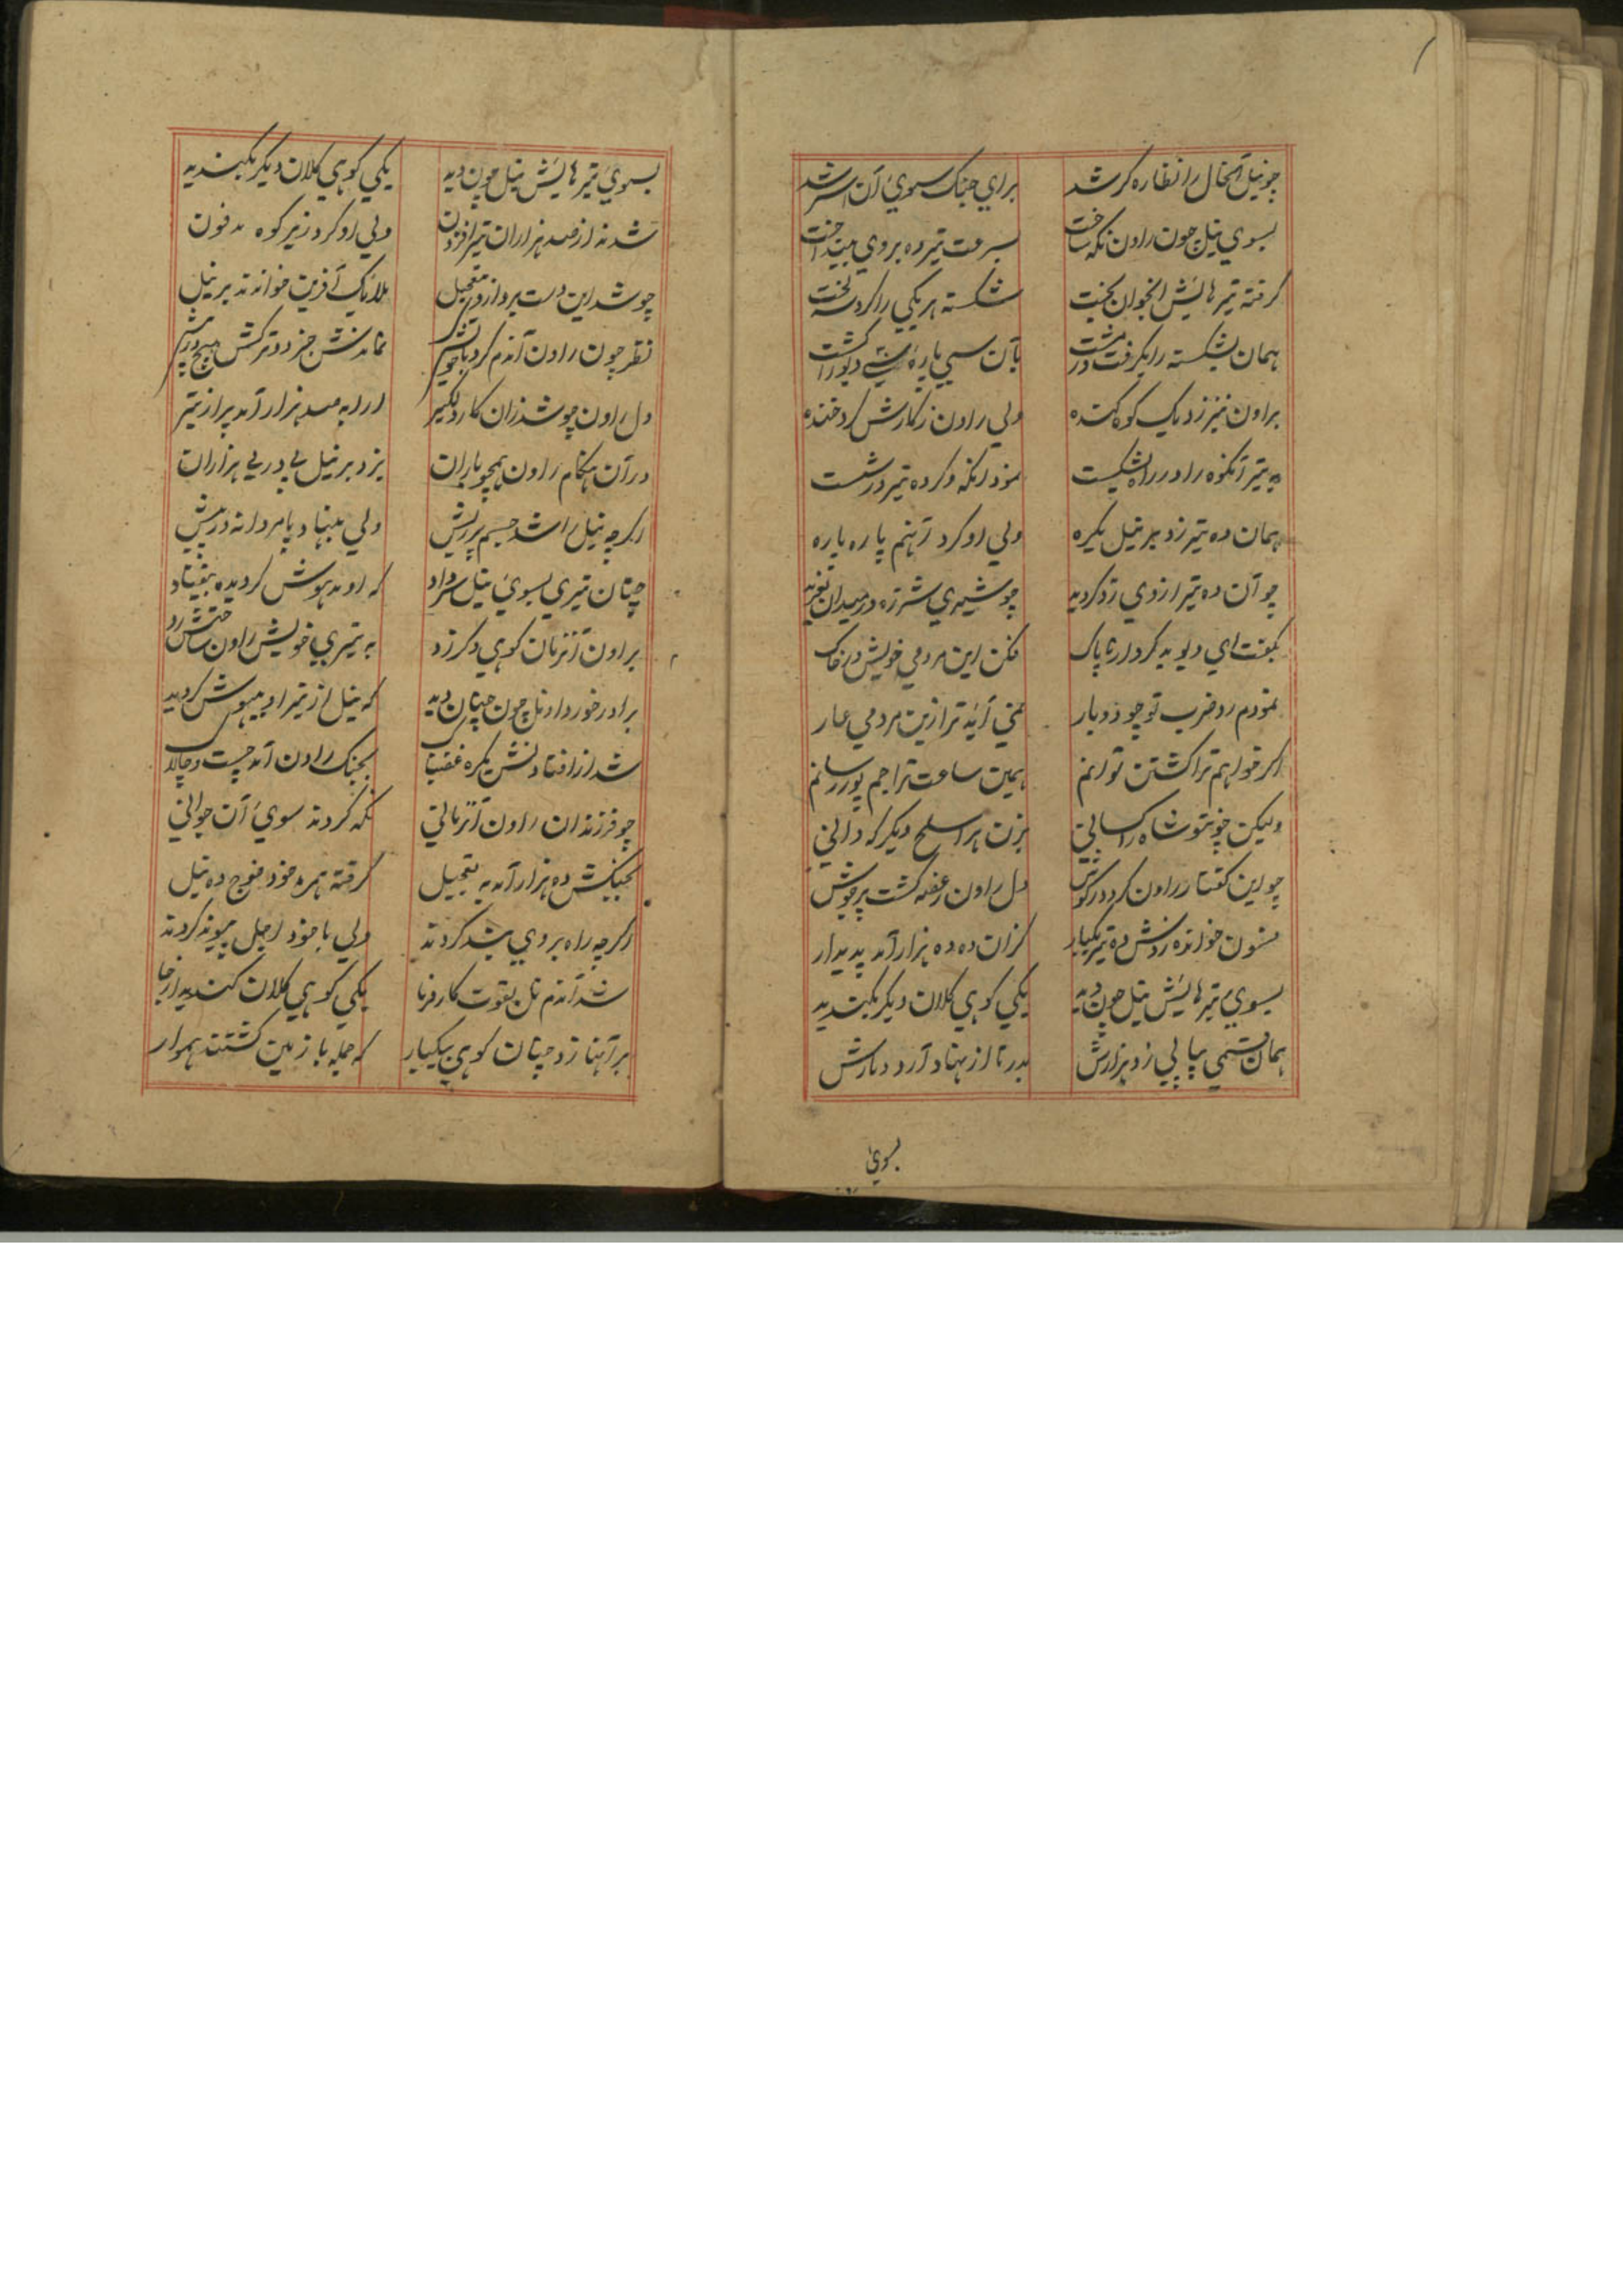 چو نیل آنحال را نظاره کر شد برای جنک سوی آن شد
بسوی نیل چون راون نکه ساخت بسرعت تیر ده بروی بینداخت
کرفته تیر هایش انجوان بخت شکسته هر یکی را کرد لخت
همان بشکسته را بکرفت در مشت بآن سی پاره دیو را کشت
براون نیز زد یک کوه کنده ولی راون ز کارش کرد خنده
به تیر آنکوه را در راه بشکست نمود انکه دکر ده تیر در شست
همان ده تیر زد بر نیل یکره ولی او کرد آنهم پاره پاره
چو آن ده تیر از وی رد کردید چو شیری شرزه در میدان بغرید
بکفت ای دیو بد کردار ناپاک مکن این مردمی خویش در خاک
نمودم رد ضرب تو چو دو بار نمی آید ترا زین مردمی عار
اکر خواهم ترا کشتن توانم همین ساعت ترا جم پور رسانم
ولیکن چو تو شاه بزن هر اسلح دیکر که دانی
چو این کفتار راون کرد در کوش دل راون ز غصه کشت پر جوش
فسون خوانده زدش ده تیر یکبار کزان ده ده هزار آمد پدیدار
بسوی تیر هایش نیل چون دید یکی کوهی کلان دیکر بکندید
همان قسمی پیاپی زد هزارش بدر تا از نهاد آرد دمارش
بسوی
بسوی تیر هایش نیل چون دید یکی کوهی کلان دیکر بکندید
شدند از صد هزاران تیر افزون ولی او کرد زیر کوه مدفون
چو شد این دست پرداز و تعجیل ملایک آفرین خواندند بر نیل
نظر چون راون آندم کرد نماندش جز دو ترکش هیچ
دل راون چو شد زان کار دلکیر ارابه صد هزار آمد پر از تیر
در آن هنکام راون همچو باران بزد بر نیل پی در پی هزاران
اکرچه نیل را شد جسم پر ریش ولی بنهاد پا مردانه در پیش
چنان تیری بسوی نیل سر داد که او مدهوش کردیده بیفتاد
براون آنزمان کوهی دکر زد به تیری خویش راون ساختش رد
برادر خورد او نل چون چنان دید که نیل از تیر او بیهوش کردید
شد از افتادنش یکره غضبناک بجنک راون آمد چست و چالاک
چو فرزندان راون آنزمانی نکه کردند سوی آن جوانی
بجنکش ده هزار آمد به تعجیل کرفته همره خود فوج ده نیل
اکرچه راه بروی بند کردند ولی با خود اجل پیوند کردند
شد آندم نل بقوت کار فرما یکی کوهی کلان کندید از جا
بر آنها زد چنان کوهی بیکبار که جمله با زمین کشتند هموار